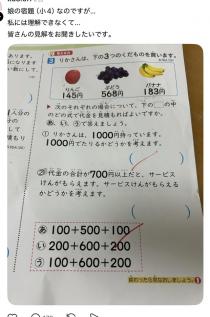 娘の宿題（小4）なのですが...
私には理解できなくて...
皆さんの見解をお聞きしたいです。
3 りかさんは、下の3つのくだものを買います。
りんご
145円
ぶどう
568円
バナナ
183円
▶ 次のそれぞれの場合について、下の の中
のどの式で代金を見積もればよいですか。
あ、い、うで答えましょう。
① りかさんは、1000円持っています。
1000円でたりるかどうかを考えます。
② 代金の合計が700円以上だと、サービス
けんがもらえます。サービスけんがもらえる
かどうかを考えます。
あ 100+500+100
い 200+600+200
う 100+600+200